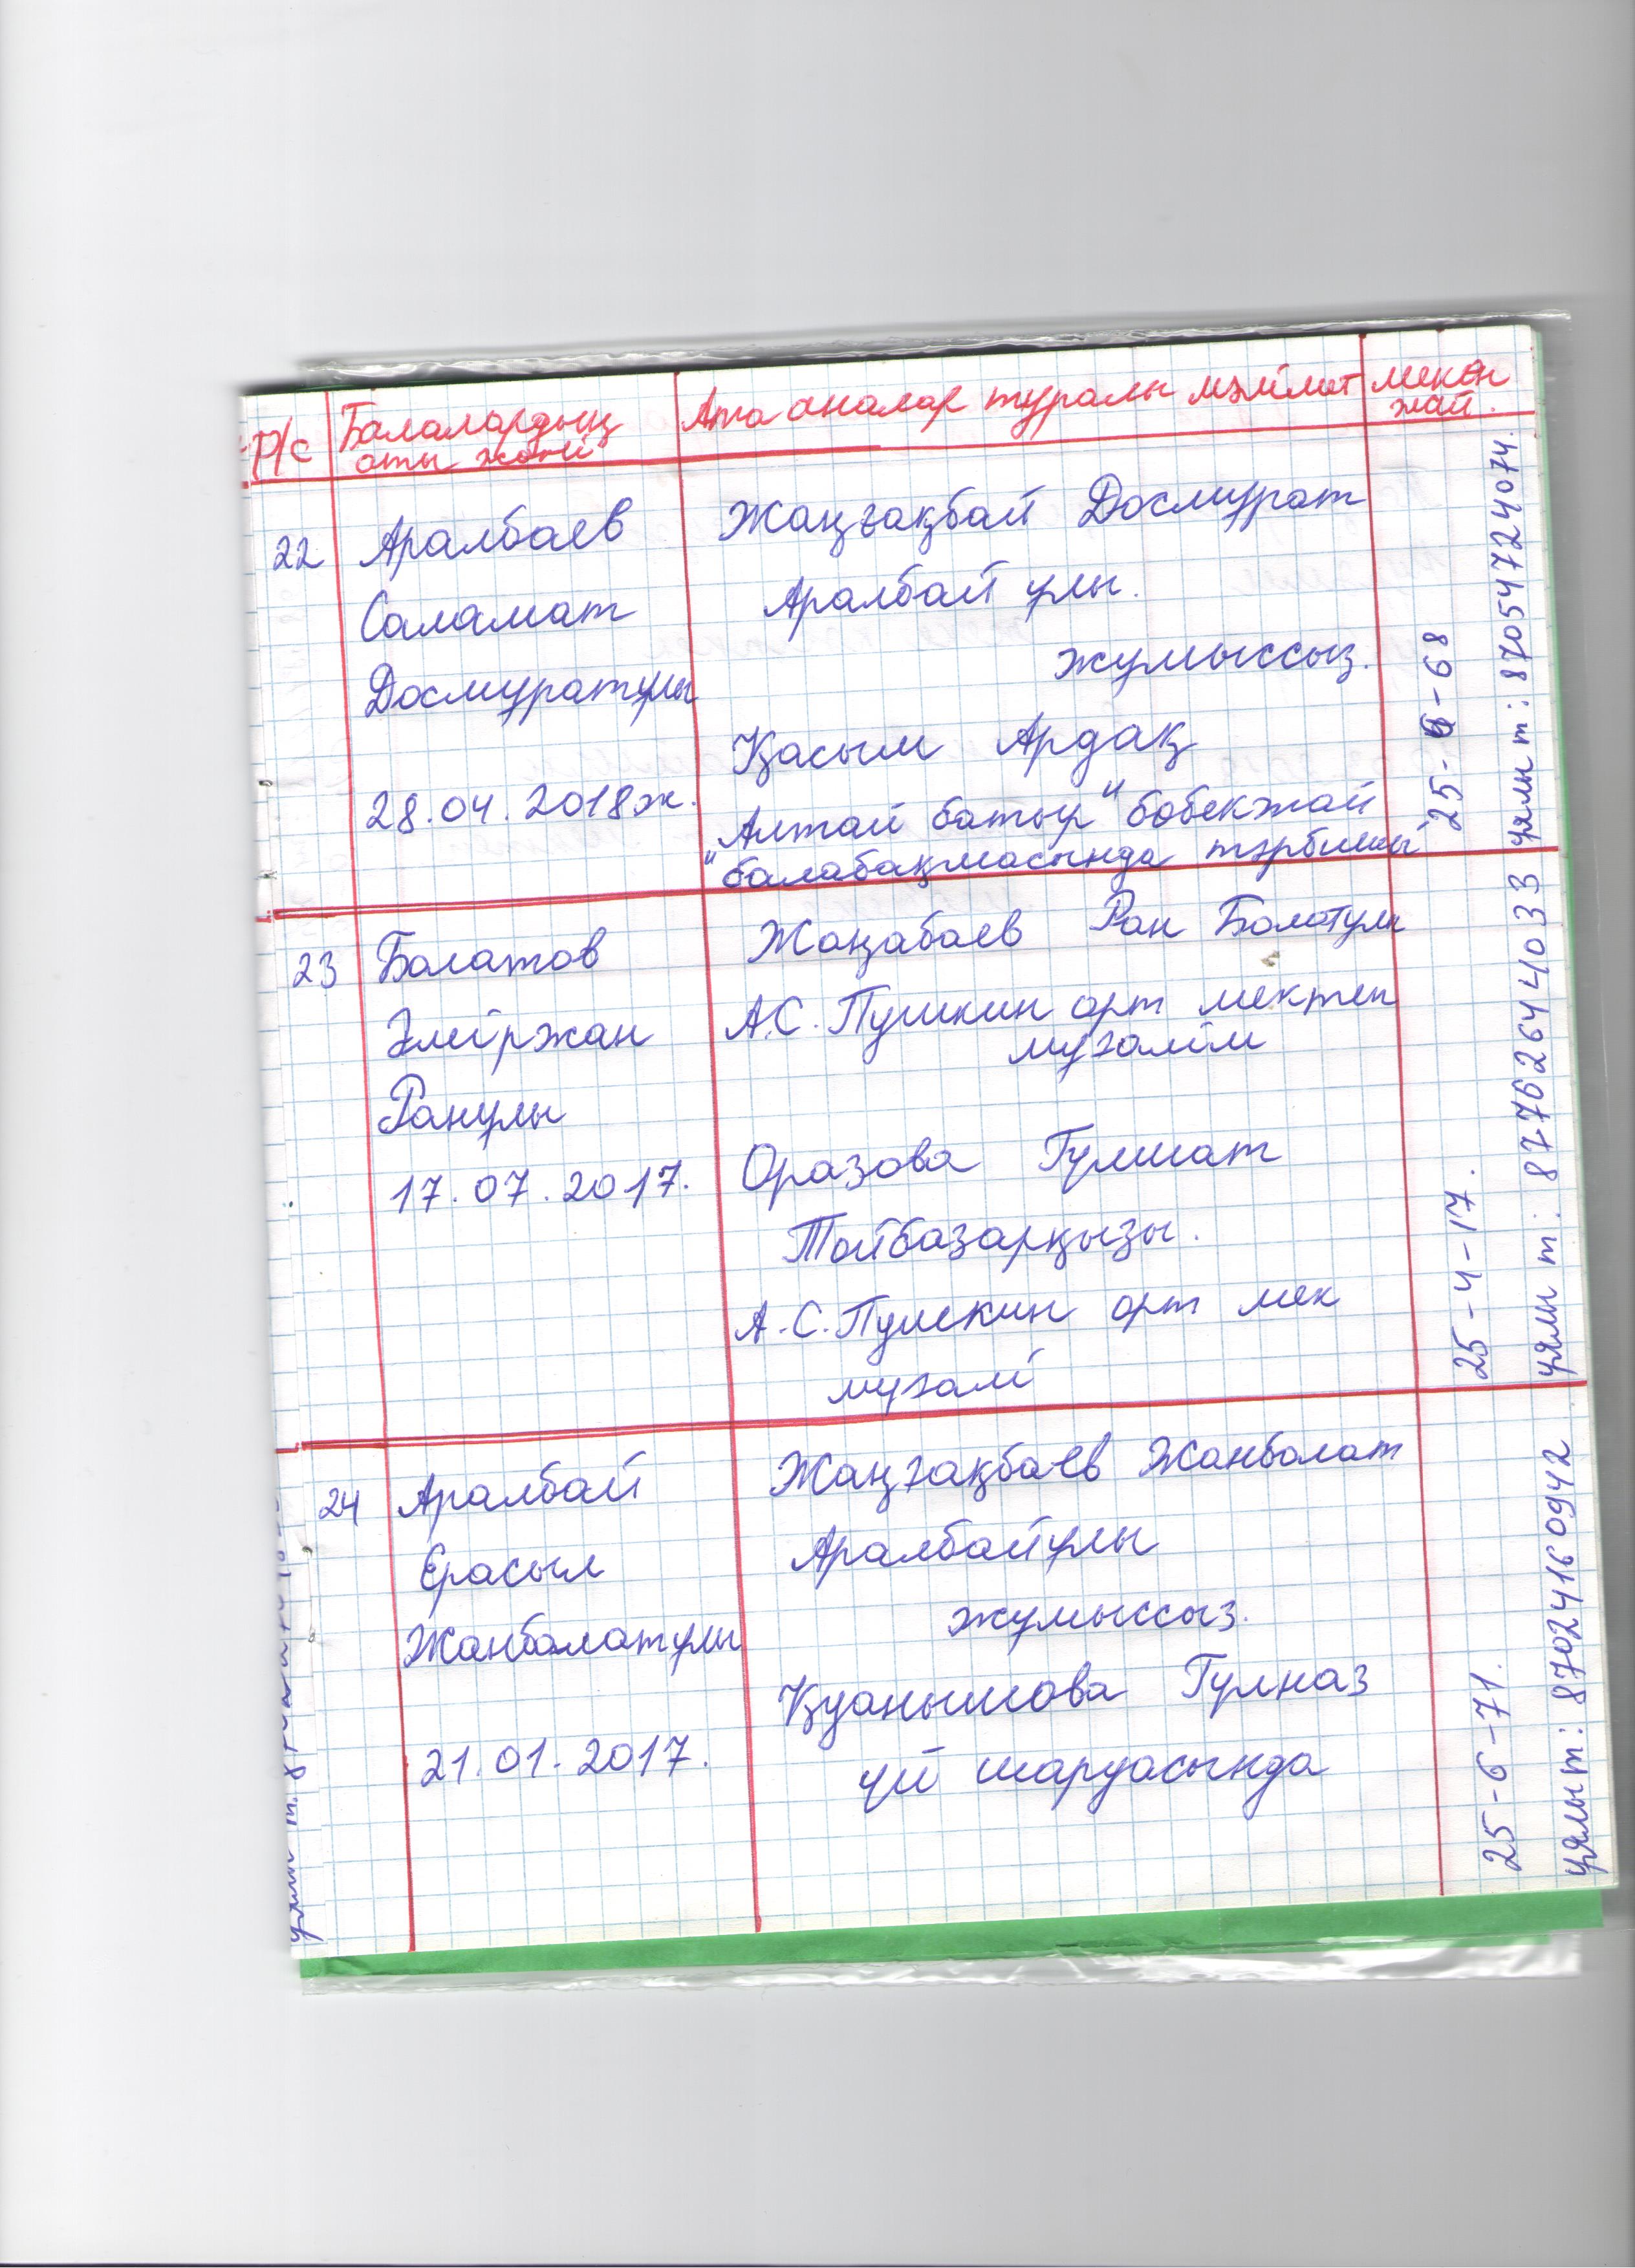 Р/с
Балалардың
аты жөні
Ата аналар туралы мәлімет
мекен
жай.
22
Аралбаев
Саламат
Досмуратұлы
28.04.2018ж.
Жаңғақбай Досмурат
Аралбай ұлы.
жұмыссыз.
Қасым Ардақ
"Алтай батыр" бөбекжай
балабақшасында тәрбиеші
25-6-68
ұялы т: 87054724074.
23
Болатов
Әміржан
Ранұлы
17.07.2017.
Жаңабаев Ран Болотұлы
А.С. Пушкин орт мектеп
мұғалім
Оразова Гүлшат
Тойбазарқызы.
А.С. Пушкин орт мек
мұғалі
25-4-17.
ұялы т: 87762644033
24
Аралбай
Ерасыл
Жанболатұлы
21.01.2017.
Жаңғақбаев Жанболат
Аралбайұлы
жұмыссыз.
Қуанышова Гүлназ
үй шаруасында
25-6-71.
ұялы т: 87024160942